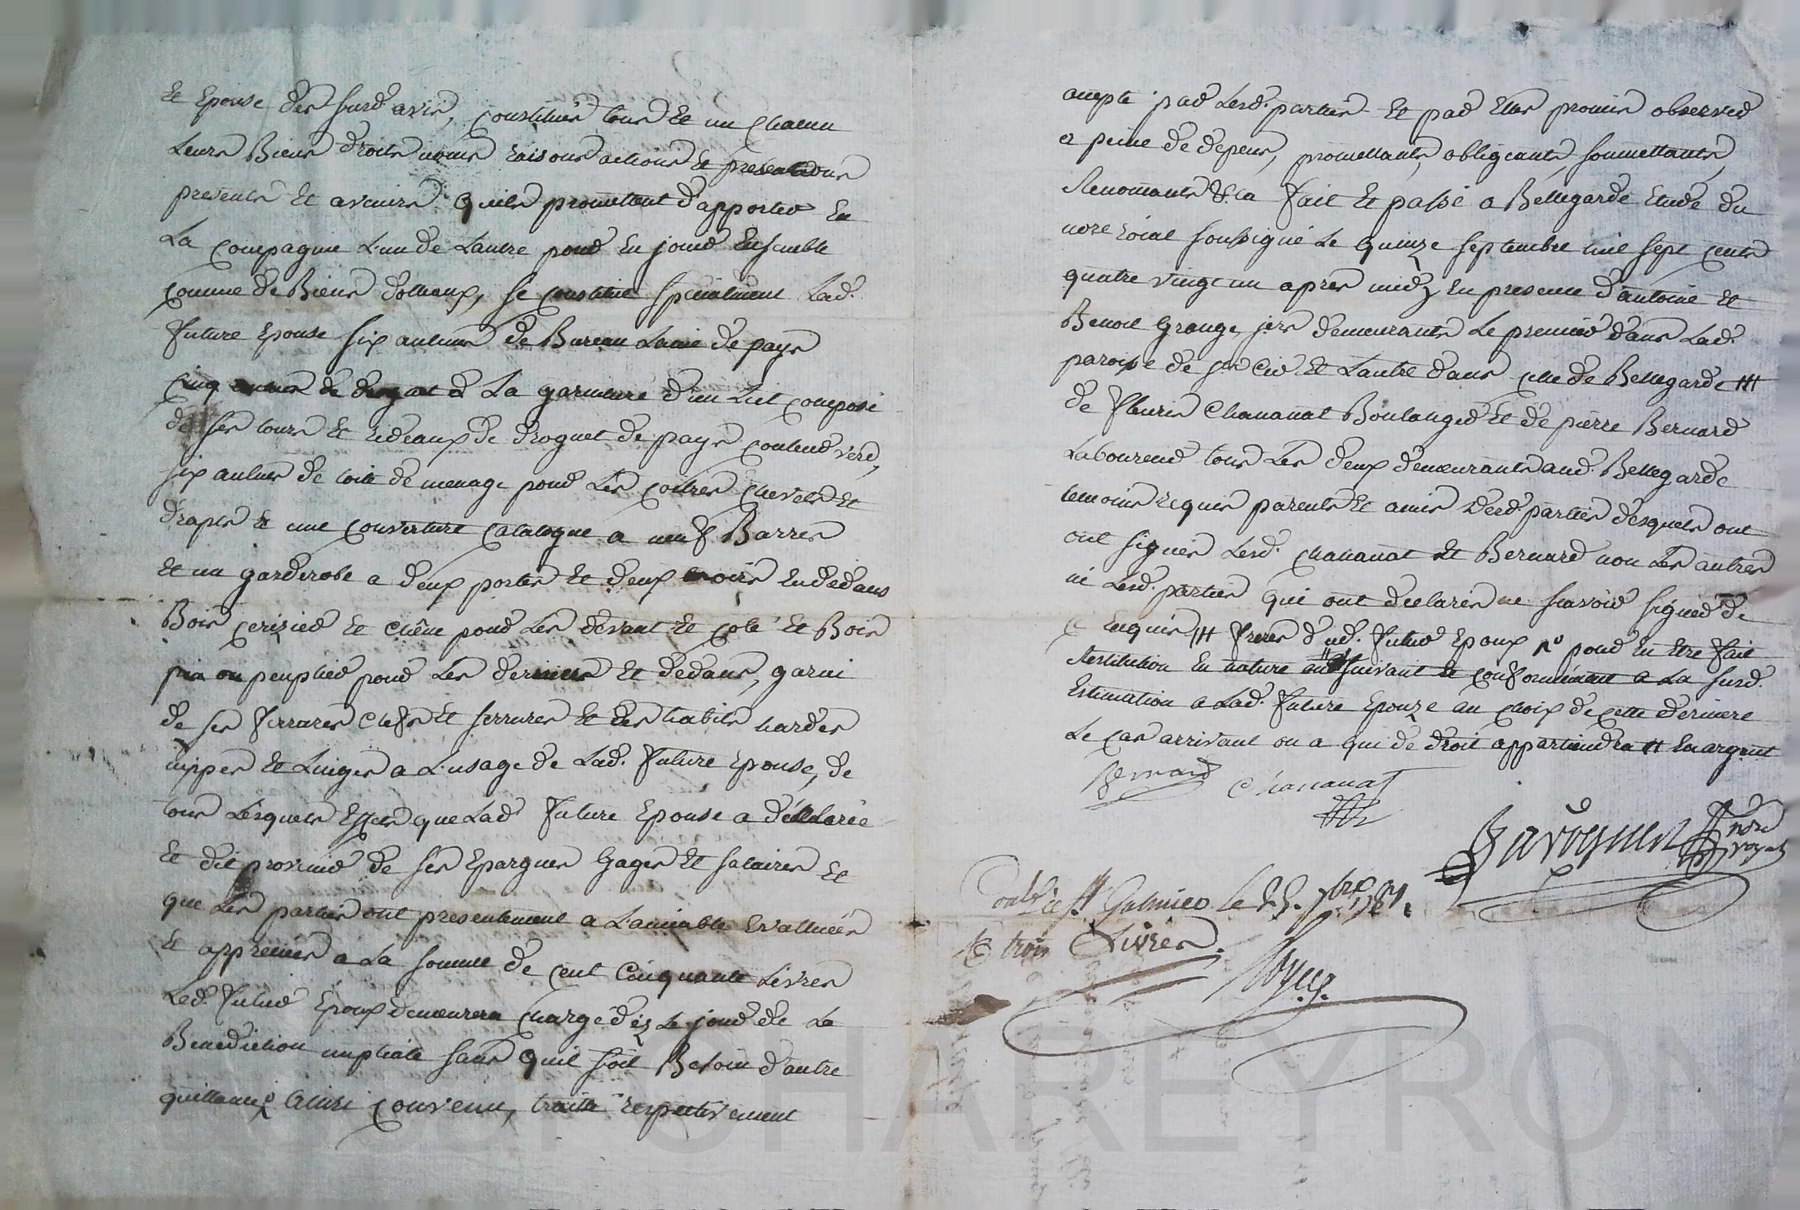 et Epouse des surd. avis, constitués tous et un chacun
Leurs Biens droits noms raisons actions et pretentions
presents et avenirs quils promettent d'apporter en
La compagnie L'un de Lautre pour en jouir ensemble
comme de Biens dotteaux, se constitue specialement Lad.
future Epouse six aulnes de Bureau Laine de pays
cinq aulnes de La garniture d'un Lict composé
de ses tours et rideaux de droguet de pays couleur verd,
six aulnes de toile de menage pour Les coitres chevets et
draps et une couverture catalogne a neuf Barres
et un garderobe a deux portes et deux tiroirs en dedans
Bois cerizier et chêne pour Les devant et coté et Bois
pin ou peuplier pour Les derniers et dedans, garni
de ses ferrures clefs et serrures et des habits hardes
nippes et Linges a L'usage de Lad. future Epouse, de
tous Lesquels Effets que Lad. future Epouse a déclarée
et dit provenir de ses Epargnes gages et salaires et
que Les parties ont presentement a Lamiable Evalluées
et appreciés a La somme de cent cinquante Livres
Led. futur Epoux demeurera chargé dez Le jour de La
Benediction nuptiale sans quil soit Besoin d'autre
quittance Ainsi convenu, traitté respectivement
accepté par Lesd. parties et par Elles promis observer
a peine de depens, promettants, obligeants, soumettants,
Renonçants &.ca fait et passé a Bellegarde Etude du
nore roial soussigné Le quinze septembre mil sept cents
quatre vingt un apres midy en presence d'antoine et
Benoit Grange jers demeurants Le premier dans Lad.
paroisse de st Cir et Lautre dans celle de Bellegarde ⧻
de fleuris Chananat Boulanger et de pierre Bernard
Laboureur tous Les deux demeurants aud. Bellegarde
temoins requis parents et amis desd. parties desquels ont
ont signés Lesd. chananat et Bernard non Les autres
ni Lesd. parties qui ont declarés ne sçavoir signer de
ce Enquis ⧻ freres dud. futur Epoux pour en etre fait
Restitution en nature suivant et conformément a La surd.
Estimation a Lad. future Epouze au choix de cette derniere
Le cas arrivant ou a qui de droit appartiendra ⧺ en argent
Bernard Chananat
nore
royal
Conlé a st Galmier le 25. 7bre 1781.
R trois Livres.
CHAREYRON